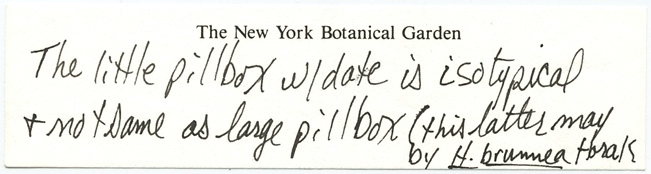 The New York Botanical Garden
The little pillbox w/date is isotypical
+ not same as large pillbox (this latter may
by H. brunnea Horak